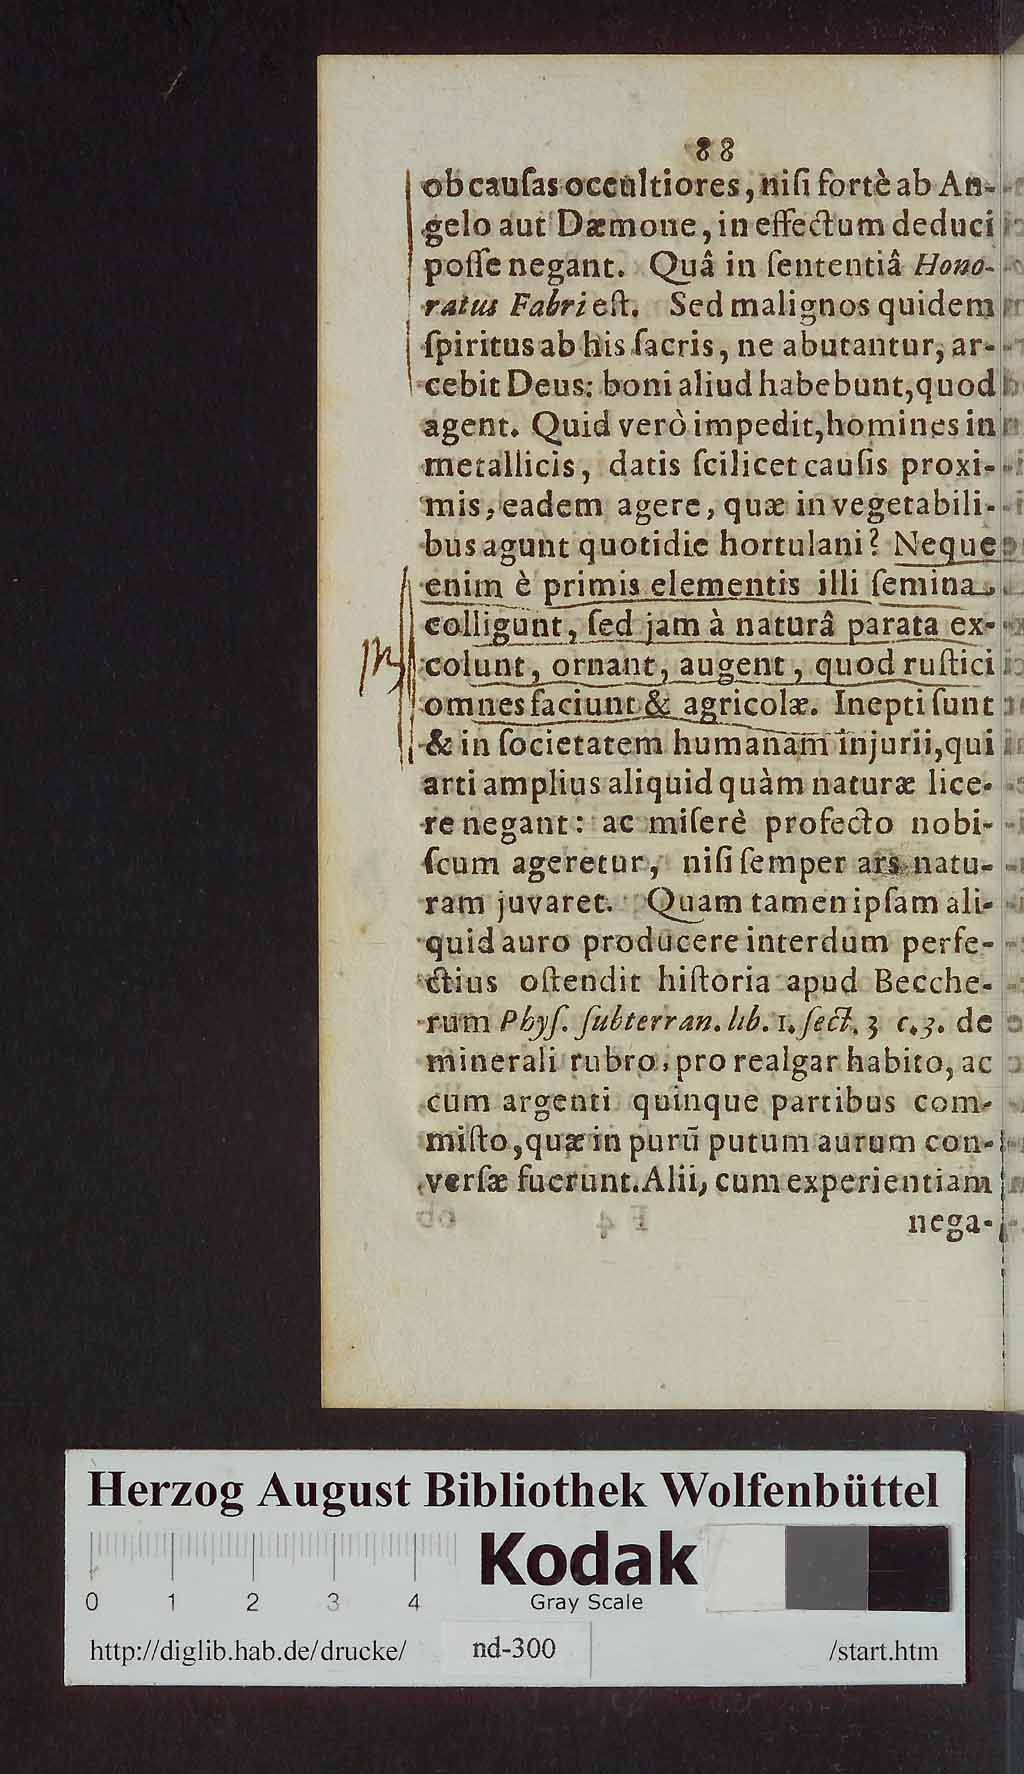 88
ob cauſas occultiores, niſi fortè ab An-
gelo aut Dæmone, in effectum deduci
poſſe negant. Quâ in ſententiâ Hono-
ratus Fabri eſt. Sed malignos quidem
ſpiritus ab his ſacris, ne abutantur, ar-
cebit Deus: boni aliud habebunt, quod
agent. Quid verò impedit, homines in
metallicis, datis ſcilicet cauſis proxi-
mis, eadem agere, quæ in vegetabili-
bus agunt quotidie hortulani? Neque
enim è primis elementis illi ſemina
colligunt, ſed jam à naturâ parata ex-
colunt, ornant, augent, quod ruſtici
omnes faciunt & agricolæ. Inepti ſunt
& in ſocietatem humanam injurii, qui
arti amplius aliquid quàm naturæ lice-
re negant: ac miſerè profecto nobi-
ſcum ageretur, niſi ſemper ars natu-
ram juvaret. Quam tamen ipſam ali-
quid auro producere interdum perfe-
ctius oſtendit hiſtoria apud Becche-
rum Phyſ. ſubterran. lib. 1. ſect. 3 c. 3. de
minerali rubro, pro realgar habito, ac
cum argenti quinque partibus com-
miſto, quæ in purū putum aurum con-
verſæ fuerunt. Alii, cum experientiam
nega-
Herzog August Bibliothek Wolfenbüttel
Kodak
0 1 2 3 4 Gray Scale
http://diglib.hab.de/drucke/ nd-300 /start.htm